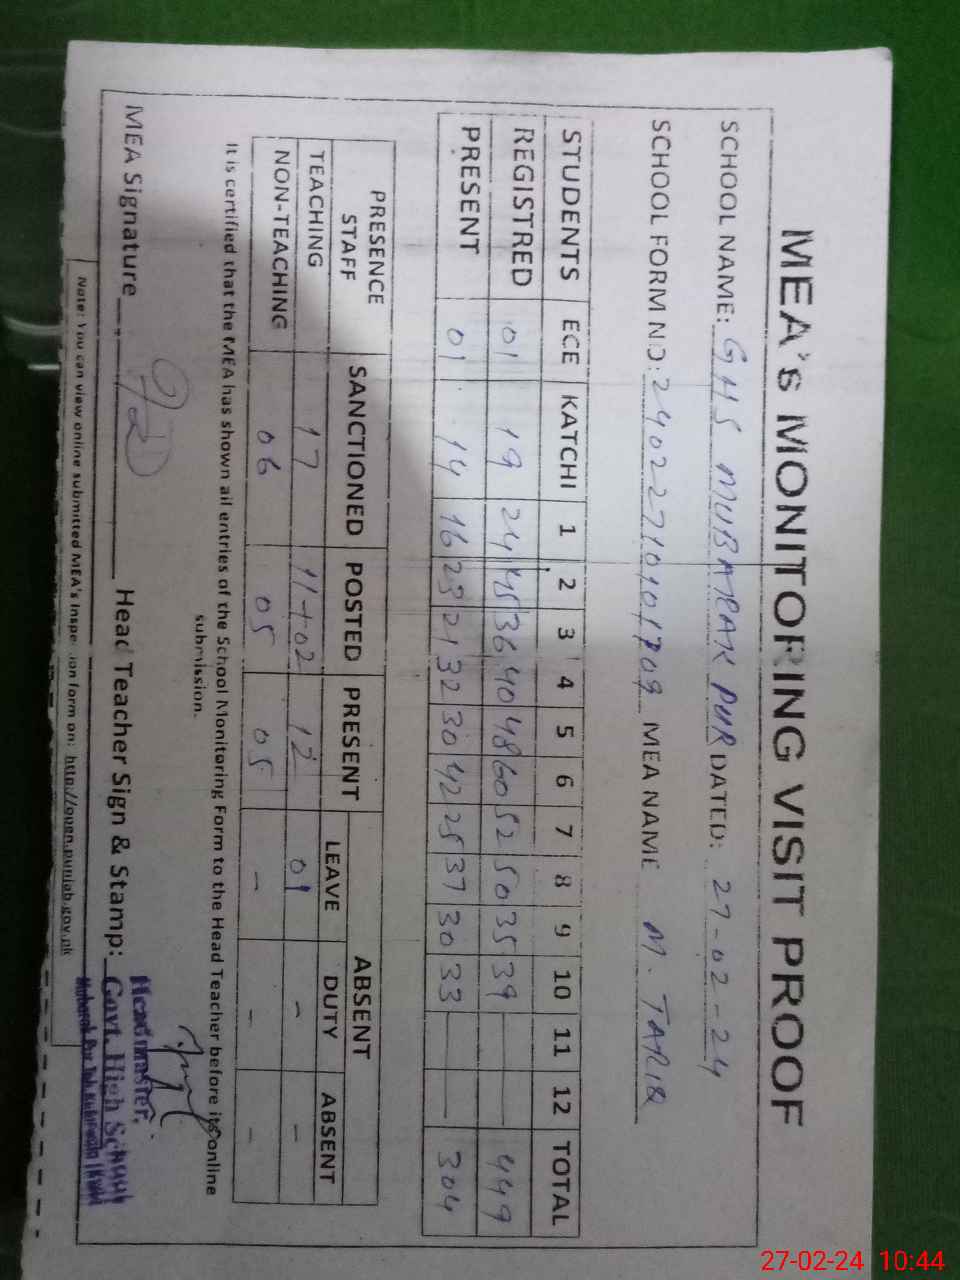 MEA's MONITORING VISIT PROOF
SCHOOL NAME: GHS MUBARAK PUR DATED: 27-02-24
SCHOOL FORM NO: MEA NAME M. TARIQ
STUDENTS ECE KATCHI 1 2 3 4 5 6 7 8 9 10 11 12 TOTAL
REGISTRED 01 19 24 45 36 40 48 60 52 50 35 39 — — 449
PRESENT 01 14 16 23 21 32 30 42 25 37 30 33 — — 304
PRESENCE STAFF SANCTIONED POSTED PRESENT ABSENT
LEAVE DUTY ABSENT
TEACHING 17 11+02 12 01 - -
NON-TEACHING 06 05 05 - - -
It is certified that the MEA has shown all entries of the School Monitoring Form to the Head Teacher before its online
submission.
MEA Signature Head Teacher Sign & Stamp:
Headmaster,
Govt. High School
Mubarak Pur Teh. Kabirwala
Note: You can view online submitted MEA's Inspection form on: http://open.punjab.gov.pk
27-02-24 10:44